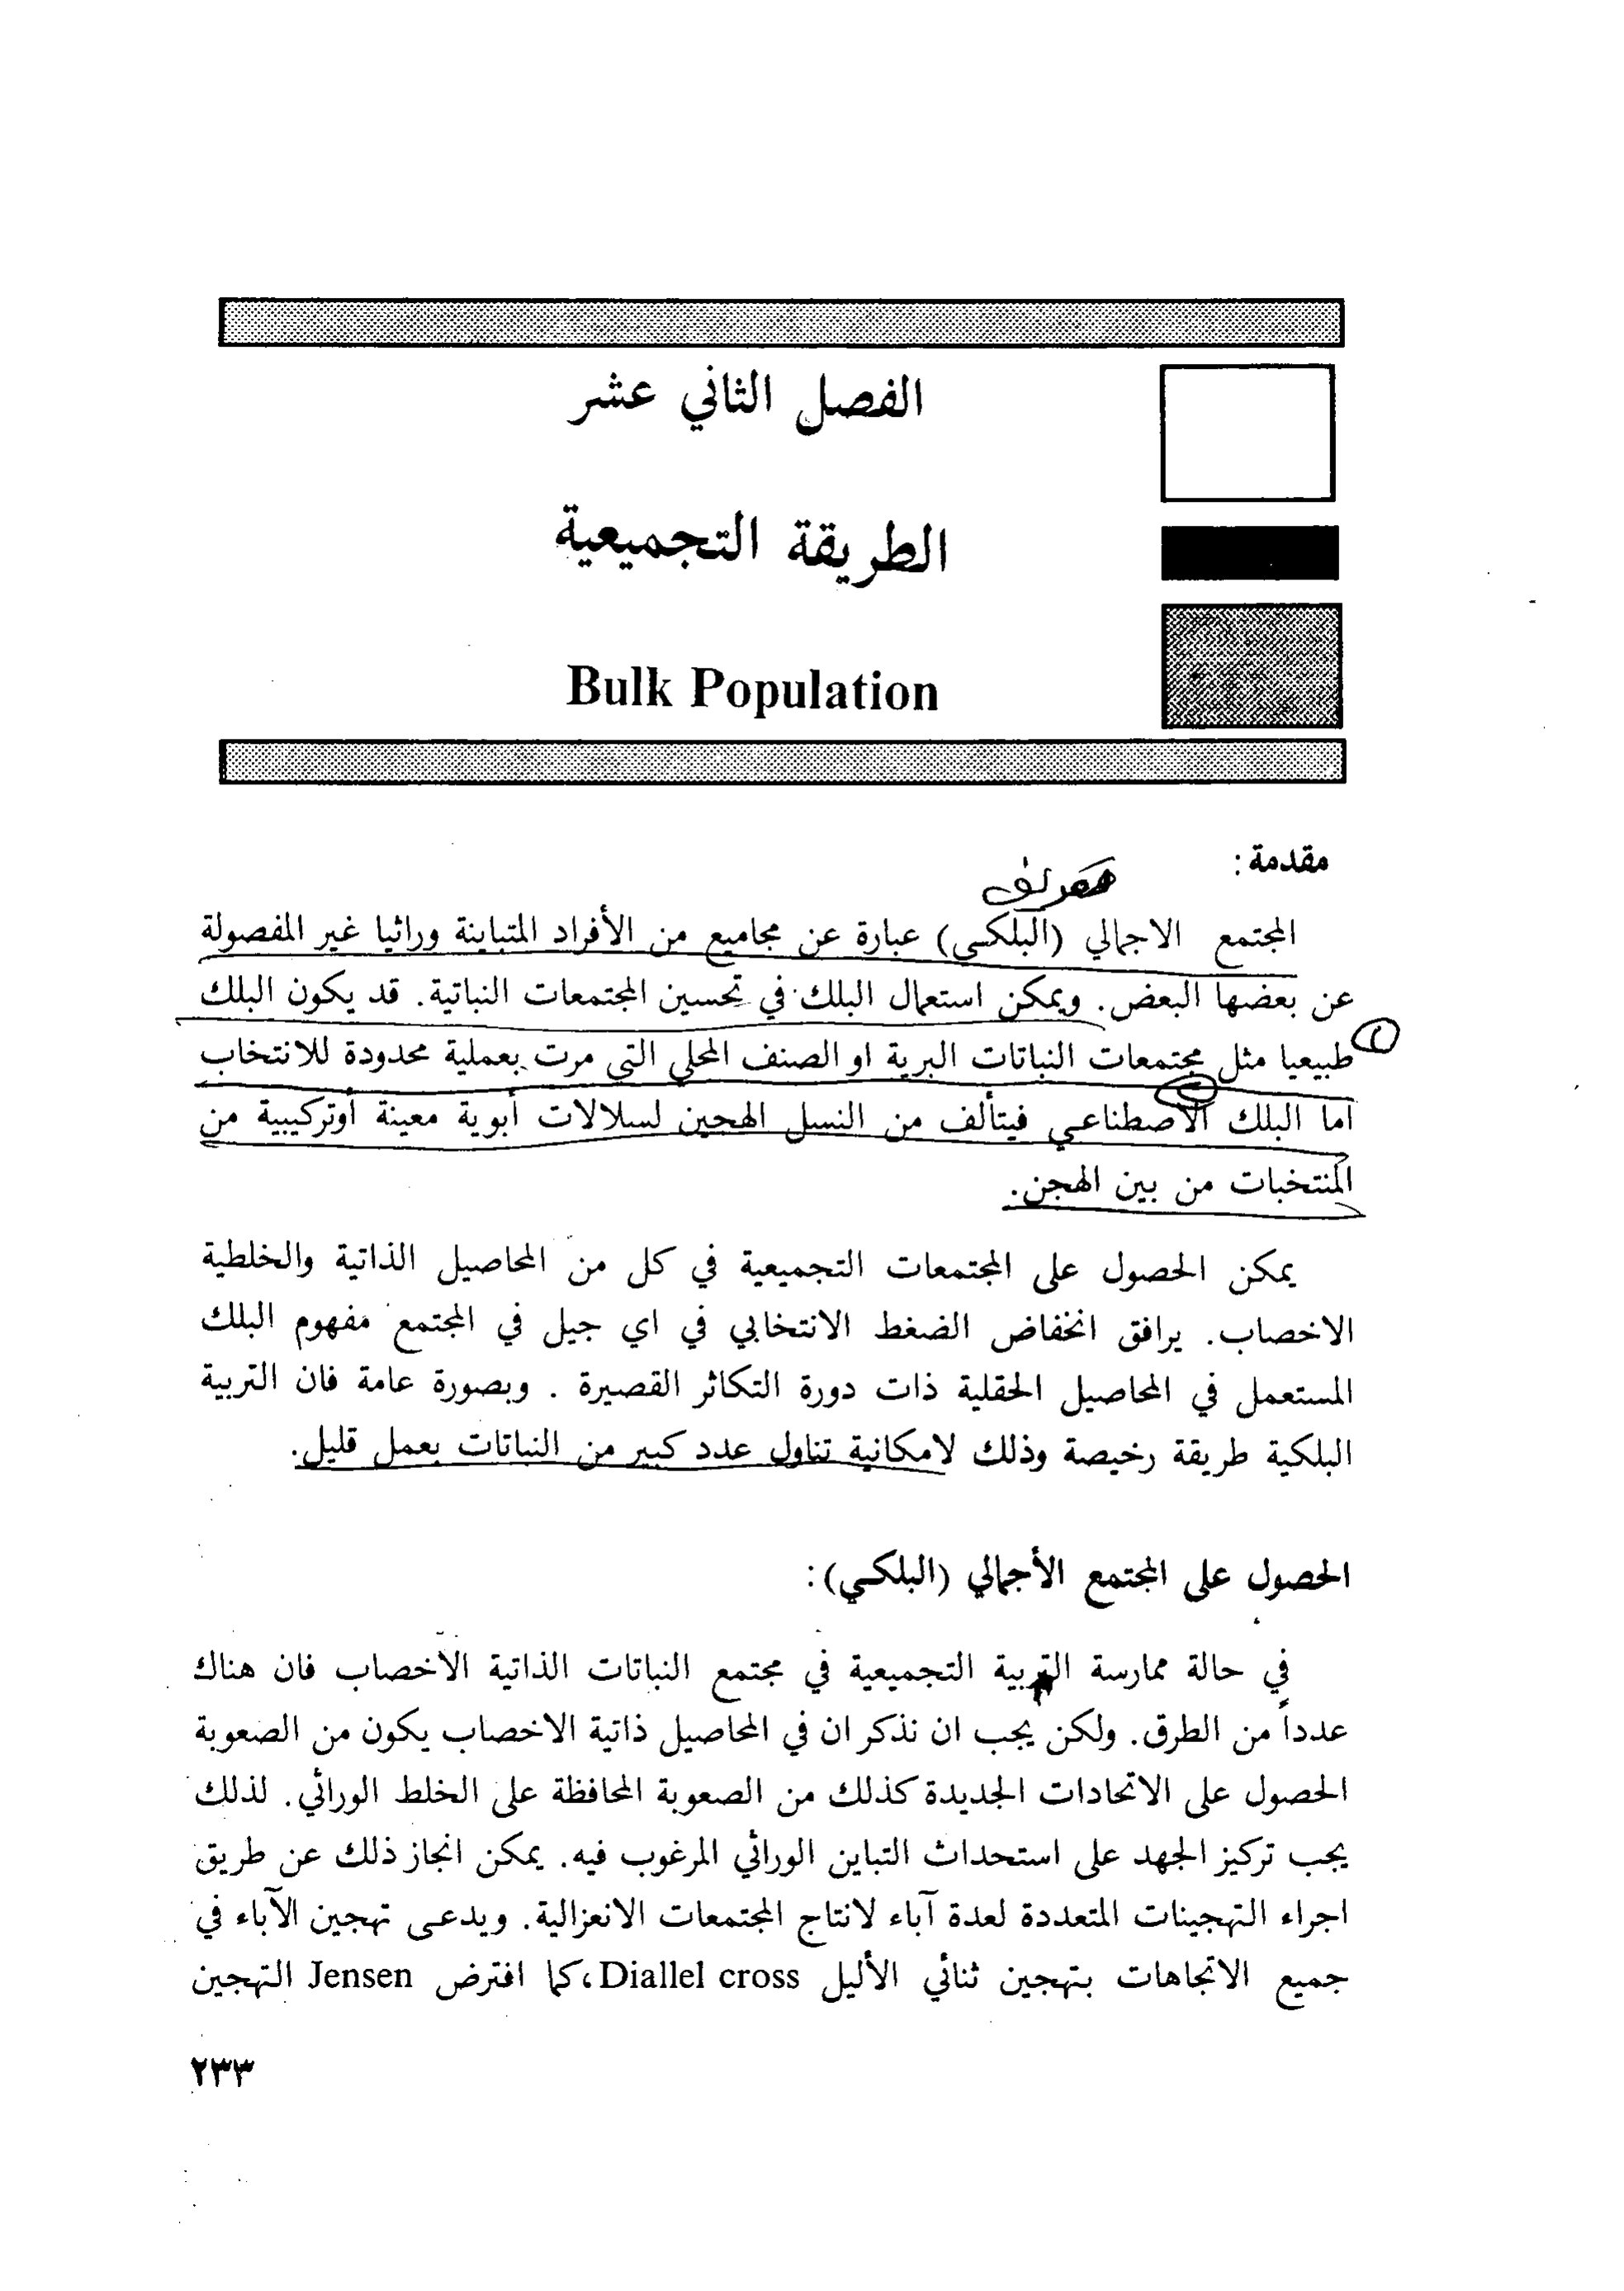 الفصل الثاني عشر
الطريقة التجميعية
Bulk Population
مقدمة:
المجتمع الاجمالي (البلكي) عبارة عن مجاميع من الأفراد المتباينة وراثيا غير المفصولة
عن بعضها البعض. ويمكن استعمال البلك في تحسين المجتمعات النباتية. قد يكون البلك
طبيعيا مثل مجتمعات النباتات البرية او الصنف المحلي التي مرت بعملية محدودة للانتخاب
اما البلك الاصطناعي فيتألف من النسل الهجين لسلالات أبوية معينة أوتركيبية من
المنتخبات من بين الهجن.
يمكن الحصول على المجتمعات التجميعية في كل من المحاصيل الذاتية والخلطية
الاخصاب. يرافق انخفاض الضغط الانتخابي في اي جيل في المجتمع مفهوم البلك
المستعمل في المحاصيل الحقلية ذات دورة التكاثر القصيرة . وبصورة عامة فان التربية
البلكية طريقة رخيصة وذلك لامكانية تناول عدد كبير من النباتات بعمل قليل.
الحصول على المجتمع الأجمالي (البلكي):
في حالة ممارسة التربية التجميعية في مجتمع النباتات الذاتية الأخصاب فان هناك
عدداً من الطرق. ولكن يجب ان نذكر ان في المحاصيل ذاتية الاخصاب يكون من الصعوبة
الحصول على الاتحادات الجديدة كذلك من الصعوبة المحافظة على الخلط الوراثي. لذلك
يجب تركيز الجهد على استحداث التباين الوراثي المرغوب فيه. يمكن انجاز ذلك عن طريق
اجراء التهجينات المتعددة لعدة آباء لانتاج المجتمعات الانعزالية. ويدعى تهجين الآباء في
جميع الاتجاهات بتهجين ثنائي الأليل Diallel cross، كما افترض Jensen التهجين
٢٣٣